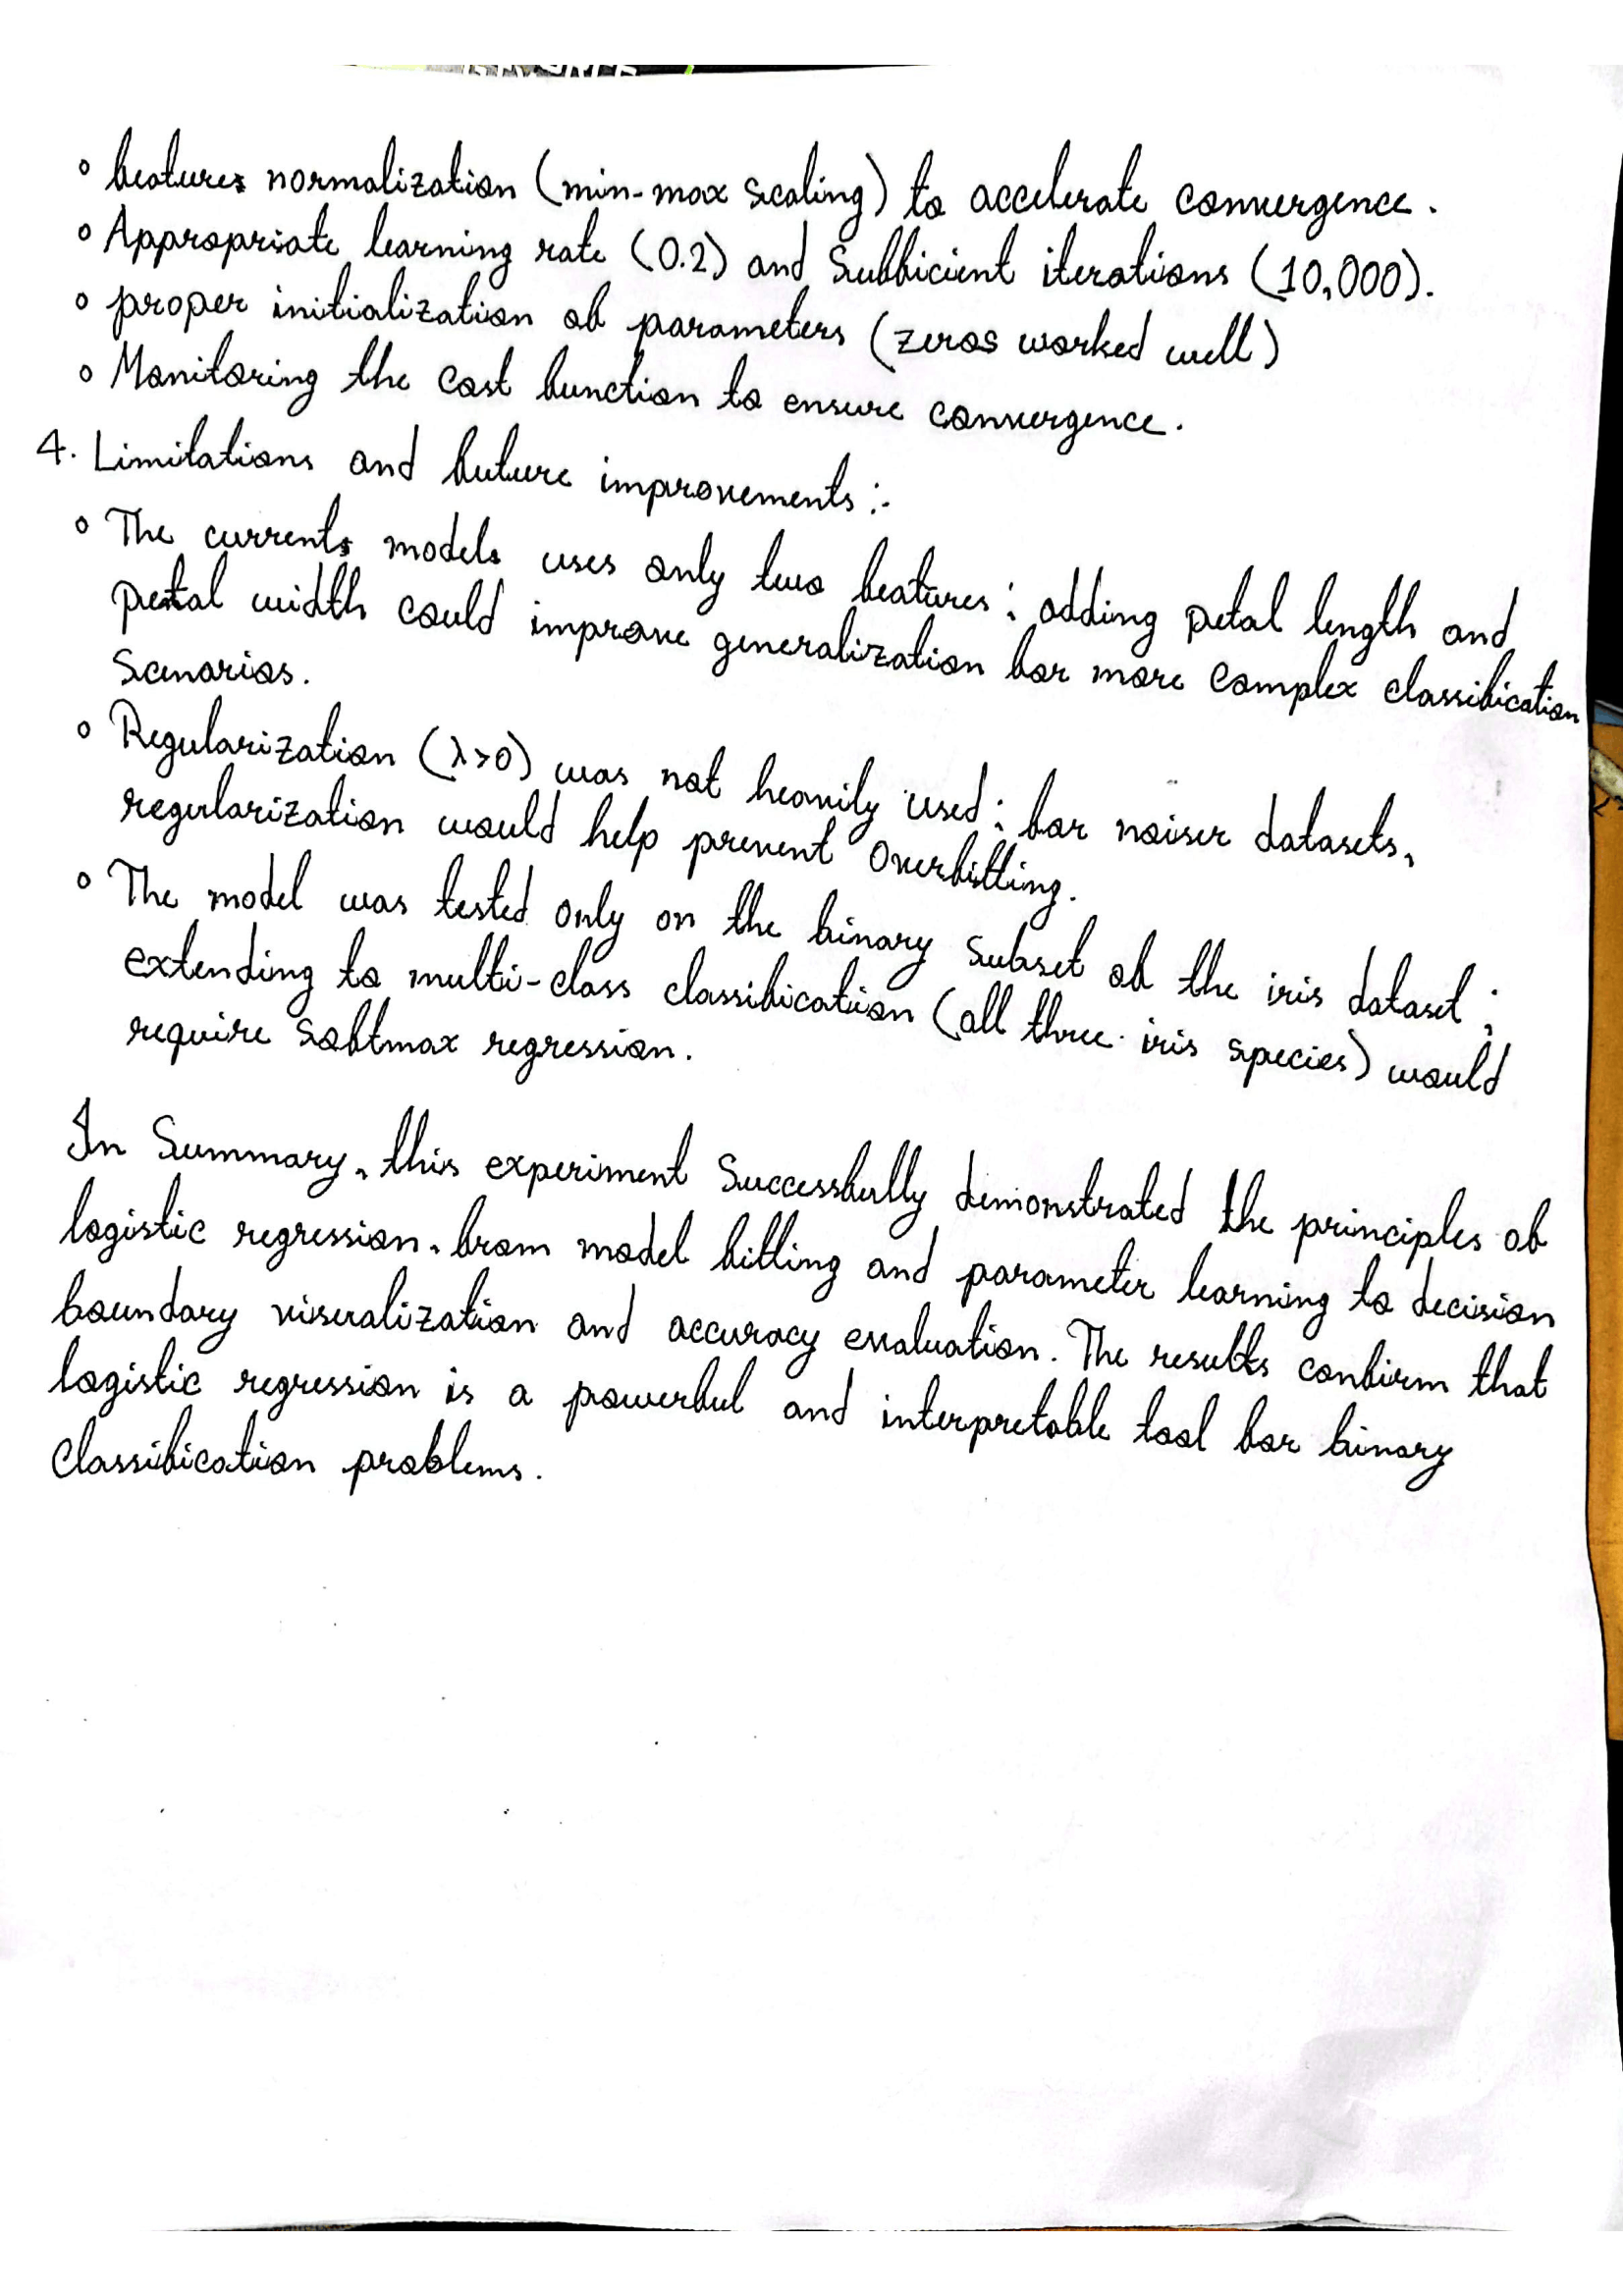 ° features normalization (min-max scaling) to accelerate convergence.
° Appropriate learning rate (0.2) and Sufficient iterations (10,000).
° proper initialization of parameters (zeros worked well)
° Monitoring the cost function to ensure convergence.
4. Limitations and future improvements :-
° The currents models uses only two features; adding petal length and
petal width could improve generalization for more complex classification
Scenarios.
° Regularization (λ>0) was not heavily used; for noiser datasets,
regularization would help prevent overfitting.
° The model was tested only on the binary subset of the iris dataset;
extending to multi-class classification (all three iris species) would
require softmax regression.
In Summary, this experiment Successfully demonstrated the principles of
logistic regression, from model fitting and parameter learning to decision
boundary visualization and accuracy evaluation. The results confirm that
logistic regression is a powerful and interpretable tool for binary
Classification problems.